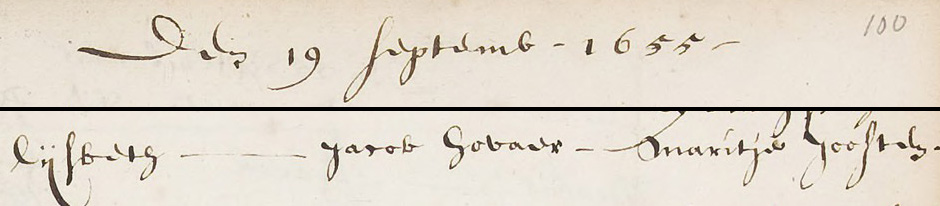 Den 19 septemb - 1655 -
100
Lijsbeth — Jacob Hovaer - Maritje Joosten.